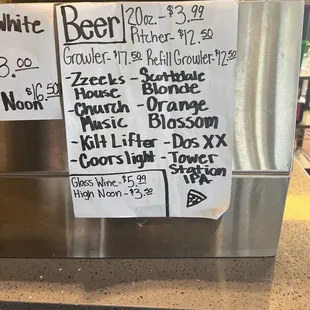 White
3.00
$16.50
Noon
Beer
20oz.-$3.99
Pitcher-$12.50
Growler-$17.50 Refill Growler-$12.50
-Zzeeks House
-Scottsdale Blonde
-Church Music
-Orange Blossom
-Kilt Lifter
-Dos XX
-Coors light
-Tower Station IPA
Glass Wine-$5.99
High Noon-$3.50